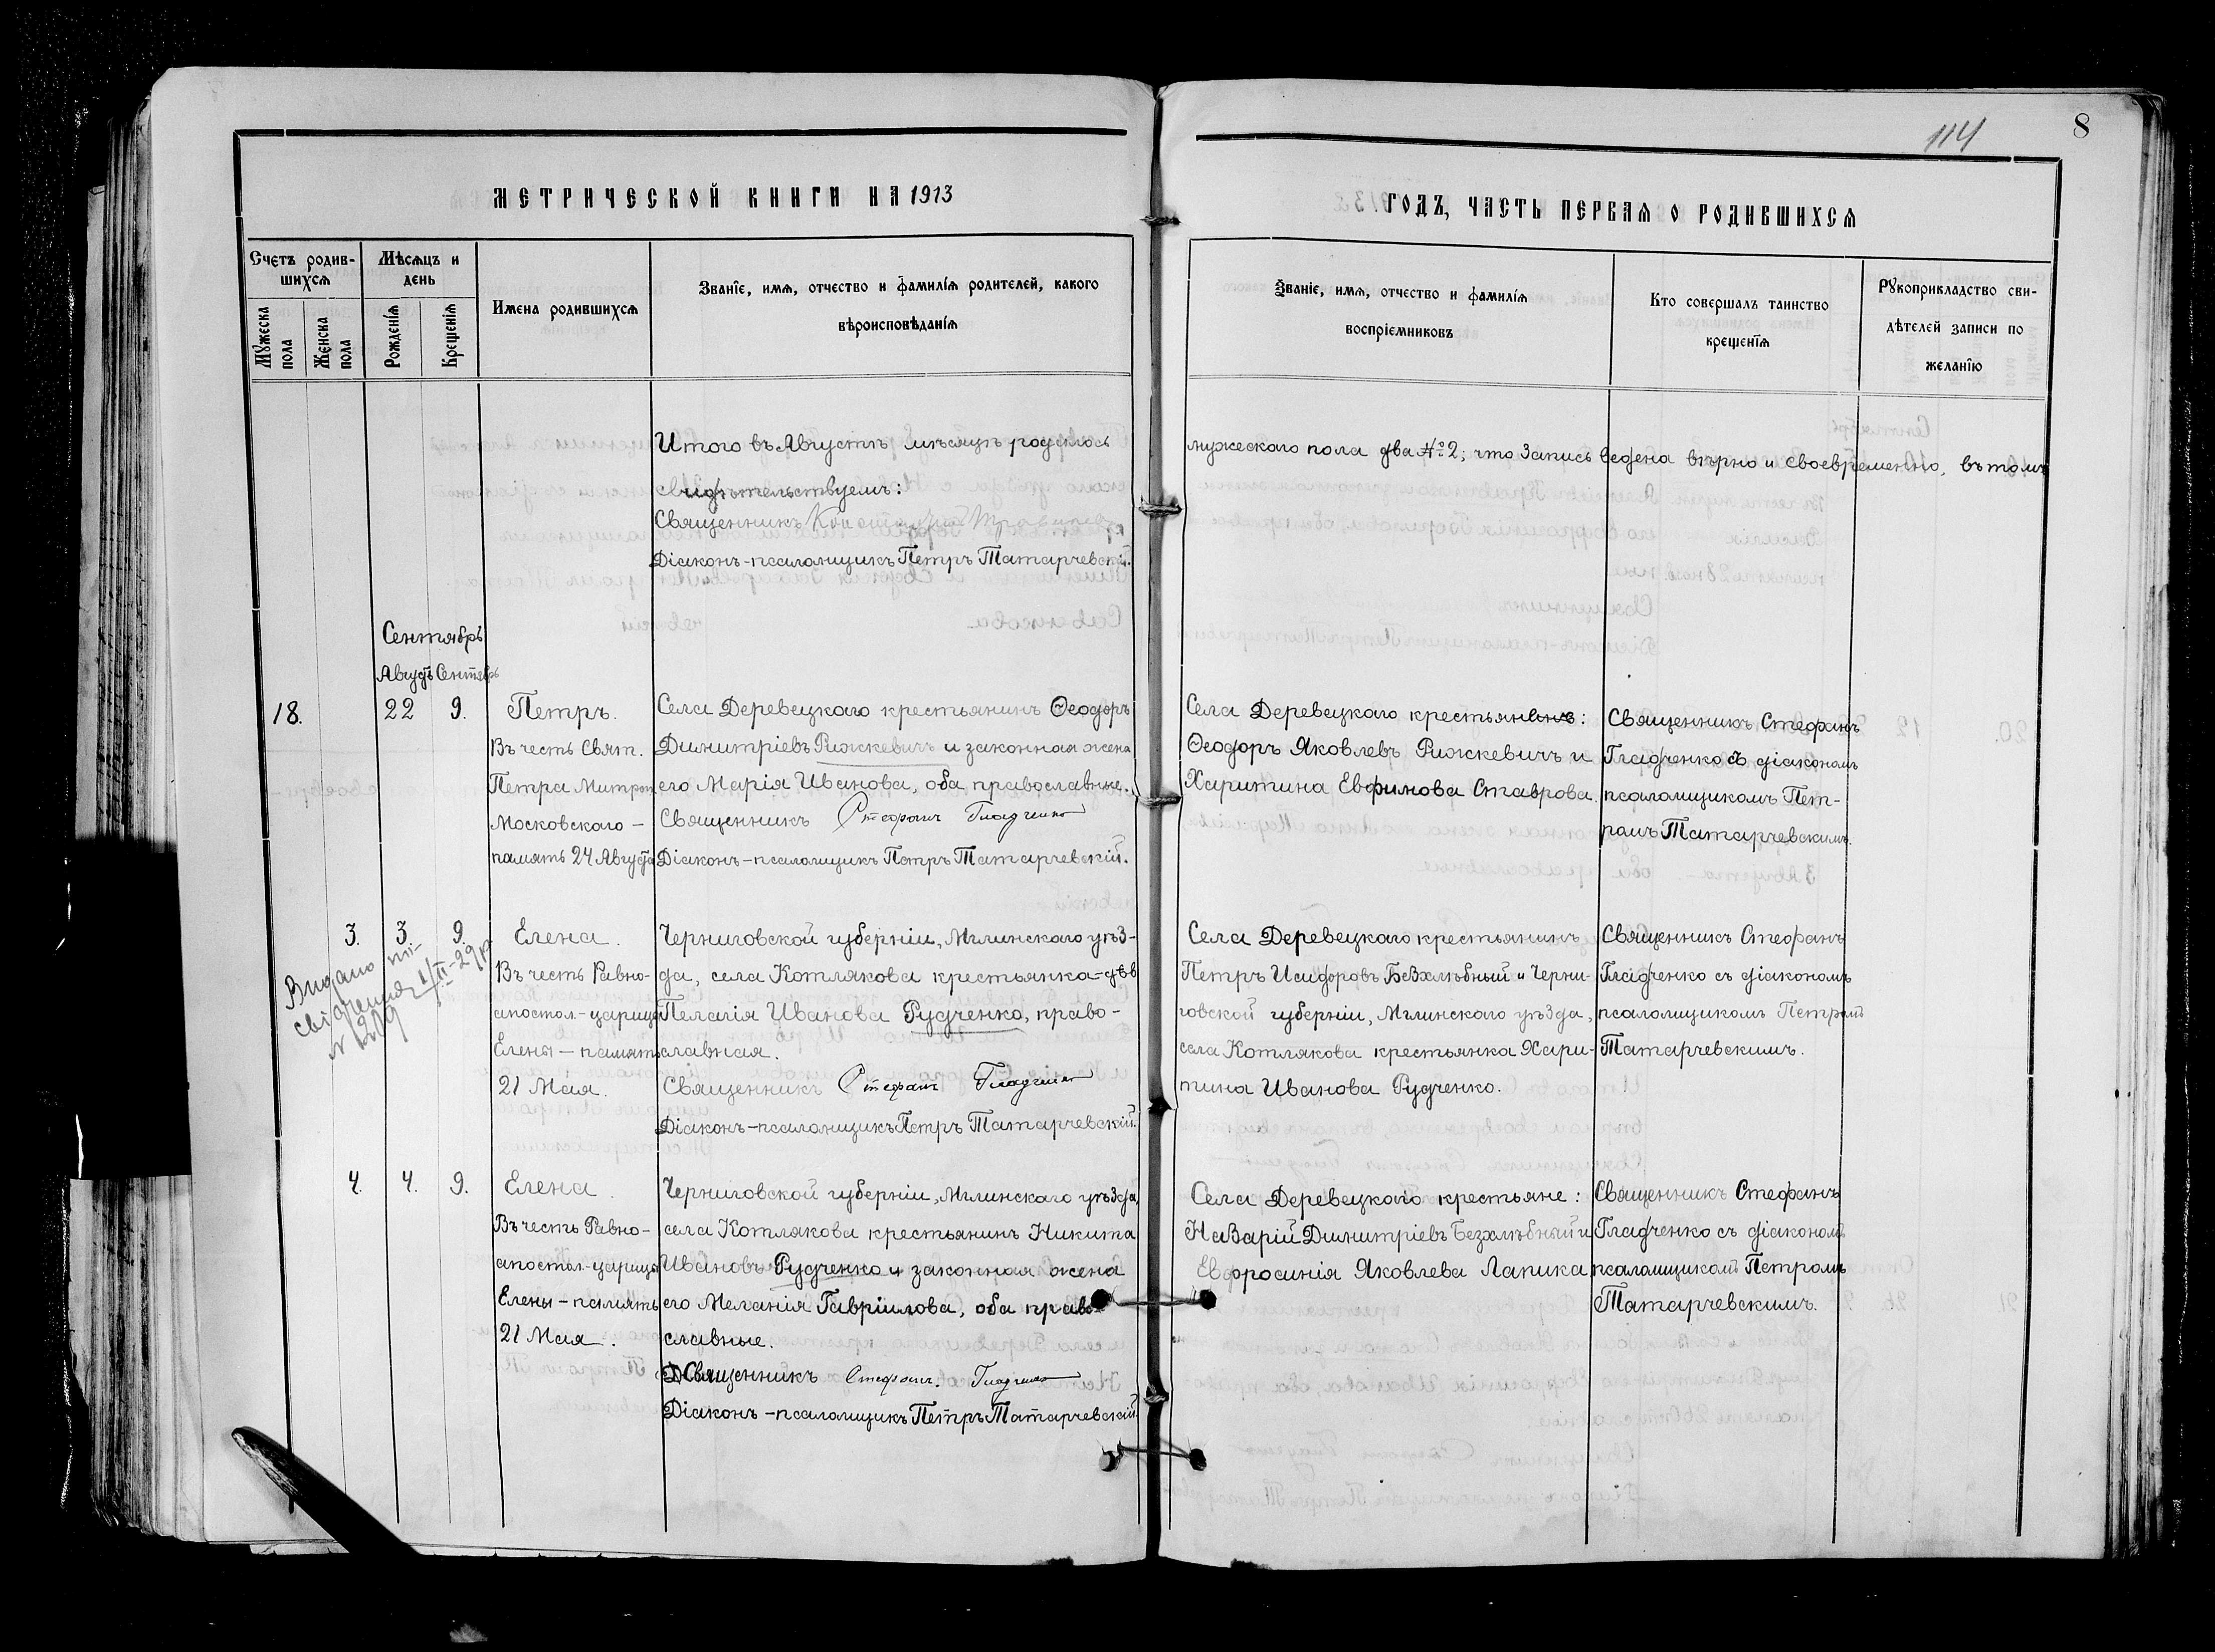 114
8
МЕТРИЧЕСКОЙ КНИГИ НА 1913
ГОДЪ, ЧАСТЬ ПЕРВАЯ О РОДИВШИХСЯ
Счетъ родив-
шихся
Мужеска пола
Женска пола
Мѣсяцъ и
день
Рожденія
Крещенія
Имена родившихся
Званіе, имя, отчество и фамилія родителей, какого
вѣроисповѣданія
Званіе, имя, отчество и фамилія
воспріемниковъ
Кто совершалъ таинство
крещенія
Рукоприкладство сви-
дѣтелей записи по
желанію
Итого въ Августѣ мѣсяцѣ родилось
мужескаго пола два № 2; что запись ведена вѣрно и своевременно, въ томъ
свидѣтельствуемъ:
Священникъ
Діаконъ-псаломщикъ Петръ Татарчевскій.
Сентябрь
Августъ Сентябрь
18.
22
9.
Петръ.
Въ честь Свят.
Петра Митроп.
Московскаго —
память 24 Августа
Села Деревецкаго крестьянинъ Ѳеодоръ
Димитріевъ Рижкевичъ и законная жена
его Марія Иванова, оба православные.
Священникъ Стефанъ Гладченко
Діаконъ-псаломщикъ Петръ Татарчевскій.
Села Деревецкаго крестьяне:
Ѳеодоръ Яковлевъ Рижкевичъ и
Харитина Евфимова Ставрова.
Священникъ Стефанъ
Гладченко съ діакономъ
псаломщикомъ Пет-
ромъ Татарчевскимъ.
3.
3
9.
Видано
свідчення
№ 1209
Елена.
Въ честь Равно-
апостол.-царицы
Елены — память
21 Мая.
Черниговской губерніи, Мглинскаго уѣз-
да, села Котлякова крестьянка-дѣв
Пелагія Иванова Рудченко, право-
славная.
Священникъ Стефанъ Гладченко
Діаконъ-псаломщикъ Петръ Татарчевскій.
Села Деревецкаго крестьянинъ
Петръ Исидоровъ Безхлѣбный и Черни-
говской губерніи, Мглинскаго уѣзда,
села Котлякова крестьянка Хари-
тина Иванова Рудченко.
Священникъ Стефанъ
Гладченко съ діакономъ
псаломщикомъ Петромъ
Татарчевскимъ.
4.
4.
9.
Елена.
Въ честь Равно-
апостол.-царицы
Елены — память
21 Мая.
Черниговской губерніи, Мглинскаго уѣзда,
села Котлякова крестьянинъ Никита
Ивановъ Рудченко и законная жена
его Меланія Гавріилова, оба право-
славные.
Священникъ Стефанъ Гладченко
Діаконъ-псаломщикъ Петръ Татарчевскій.
Села Деревецкаго крестьяне:
Назарій Димитріевъ Безхлѣбный и
Евфросинія Яковлева Лапика
Священникъ Стефанъ
Гладченко съ діакономъ
псаломщикомъ Петромъ
Татарчевскимъ.